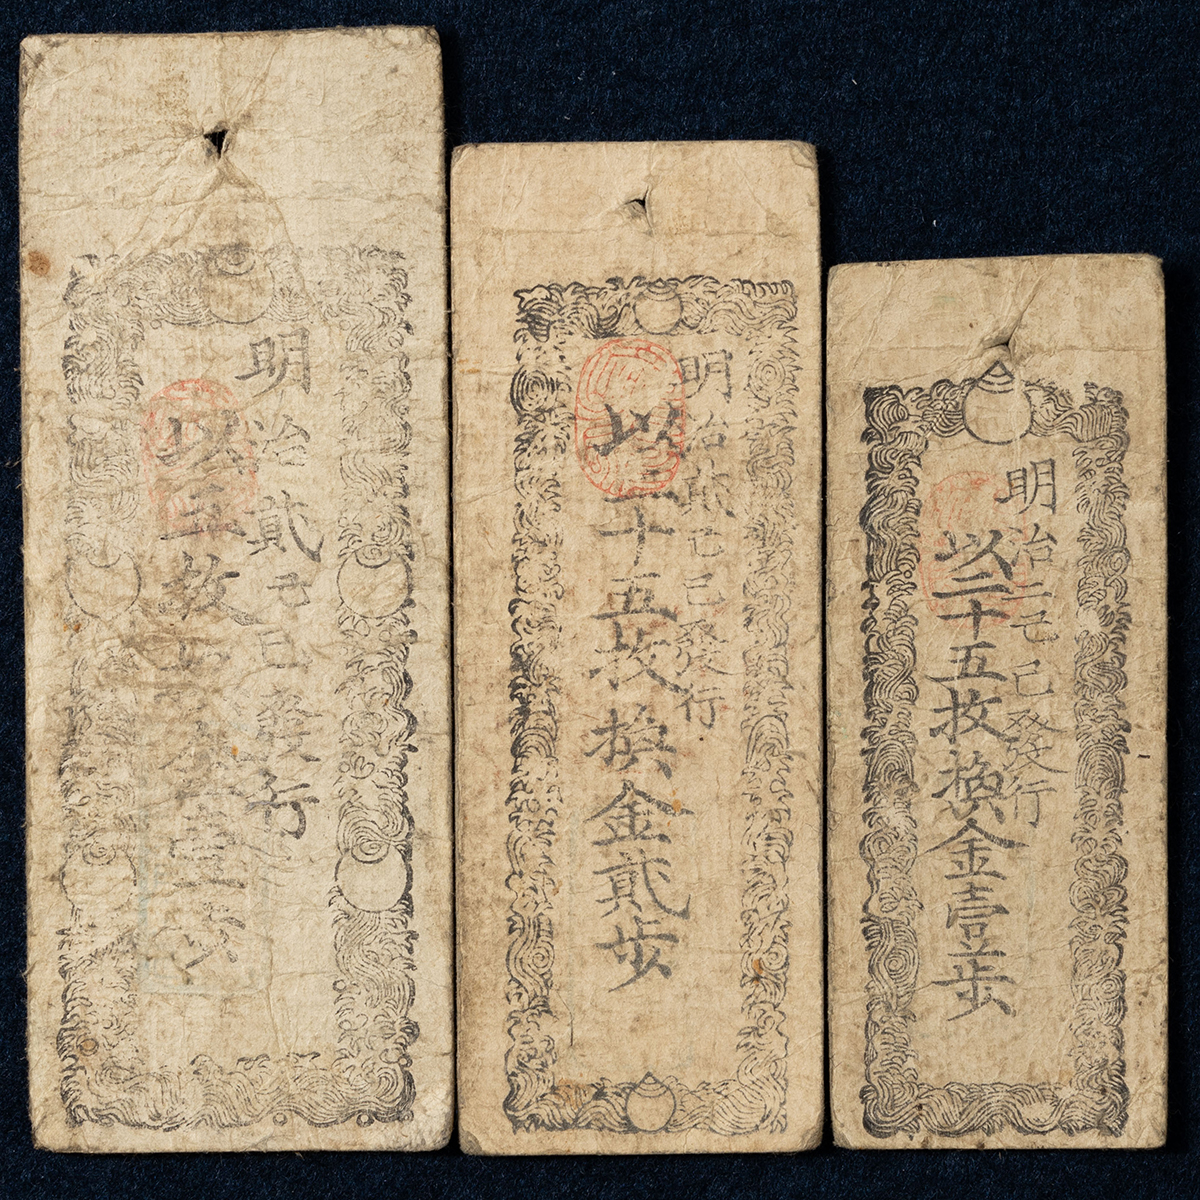 明治貳己巳發行
以五枚壹
明治己巳發行
以十五枚換金貳歩
明治二己巳發行
以二十五枚換金壹歩